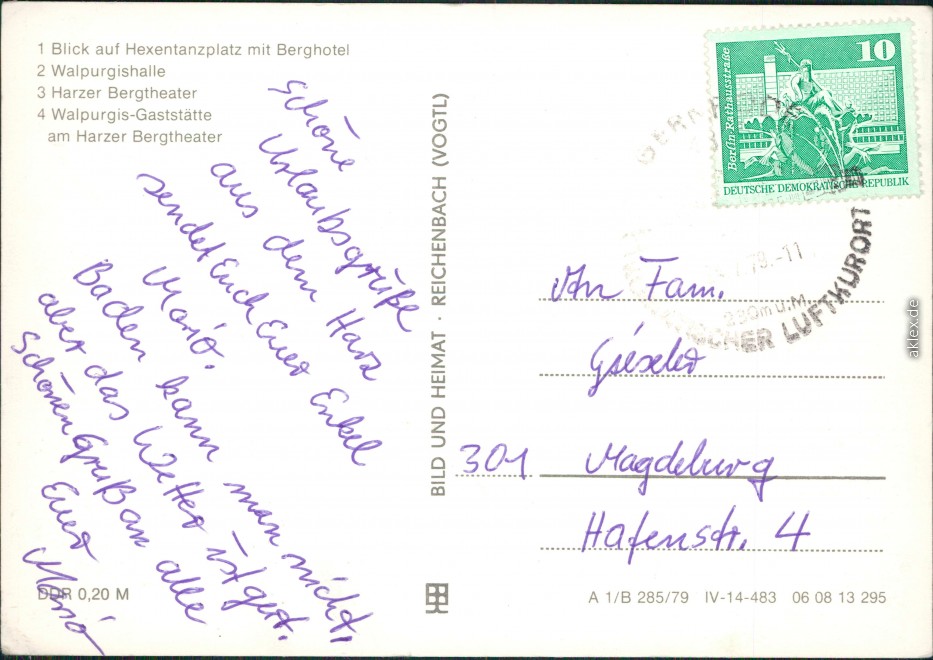 1 Blick auf Hexentanzplatz mit Berghotel
2 Walpurgishalle
3 Harzer Bergtheater
4 Walpurgis-Gaststätte
am Harzer Bergtheater
Schöne
Urlaubsgrüße
aus dem Harz
sendet Euch Euer Enkel
Mario.
Baden kann man nicht,
aber das Wetter ist gut.
Schönen Gruß an alle
Euer
Mario
DDR 0,20 M
BILD UND HEIMAT · REICHENBACH (VOGTL)
10
Berlin-Rathausstraße
DEUTSCHE DEMOKRATISCHE REPUBLIK
79.-11
230m ü.M.
LUFTKURORT
An Fam.
Gieseler
301 Magdeburg
Hafenstr. 4
A 1/B 285/79 IV-14-483 06 08 13 295
aklex.de